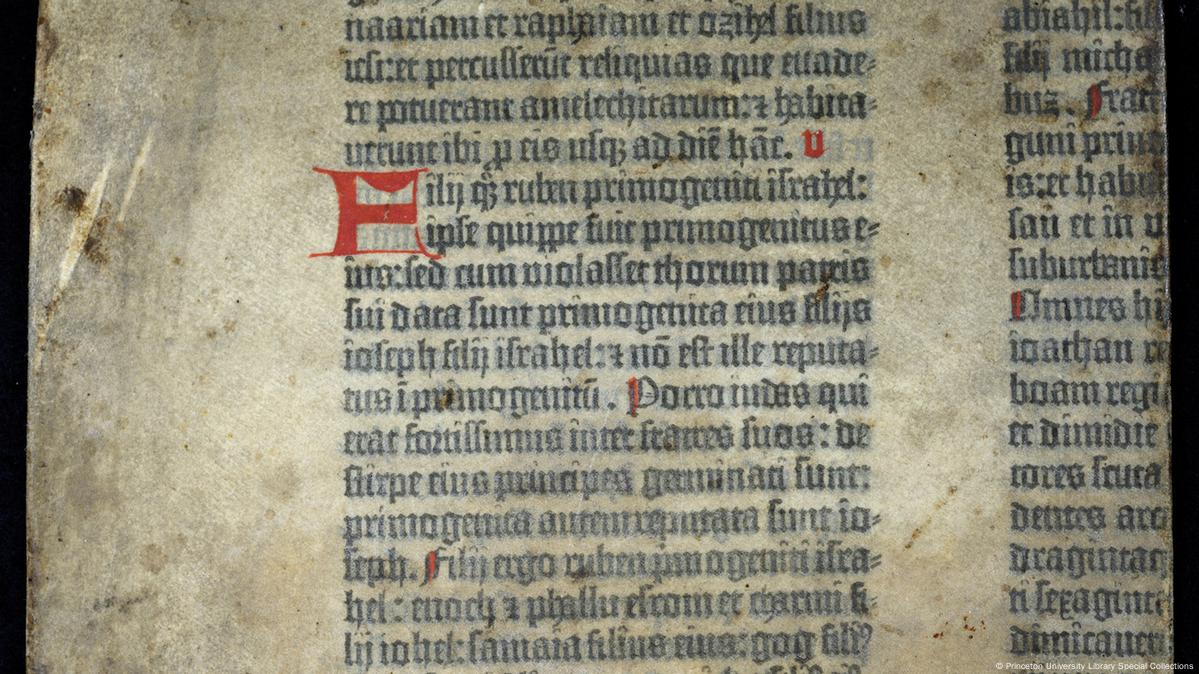 naariam et raphaiam et ozihel filius
iesi: et percusserūt reliquias que euade-
re potuerant amelechitarum: ⁊ habita-
uerunt ibi ꝓ eis usqꝫ ad diē hāc. V
Filij qꝫ ruben primogeniti israhel:
ipse quippe fuit primogenitus e-
ius: sed cum violasset thorum patris
sui data sunt primogenita eius filijs
ioseph filij israhel: ⁊ nō est ille reputa-
tus ī primogenitū. Porro iudas qui
erat fortissimus inter fratres suos: de
stirpe eius principes germinati sunt:
primogenita autem reputata sunt io-
seph. Filij ergo ruben pmogeniti isra-
hel: enoch ⁊ phallu esrom et charmi fi-
lij iohel: samaia filius eius: gog fili⁹
abiahil: fil
filij micha
buz. Fratr
guni prin
is: et habi
san et in
suburbanis
Omnes hi
ioathan re
boam regi
et dimidie
tores scuta
dentes arc
draginta
ti sexaginta
dimicauer
© Princeton University Library Special Collections